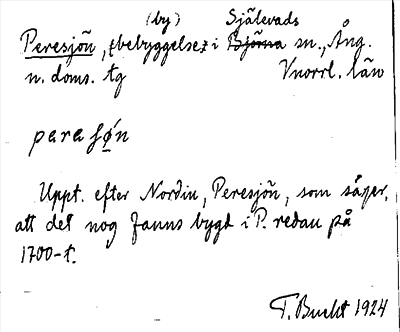 (by) Själevads
Peresjön, (bebyggelse) i Björna sn., Ång.
n. doms. tg Vnorrl. län
peraʃǿn
Uppt. efter Nordin, Peresjön, som säger,
att det nog fanns bygd i P. redan på
1700-t.
T. Bucht 1924